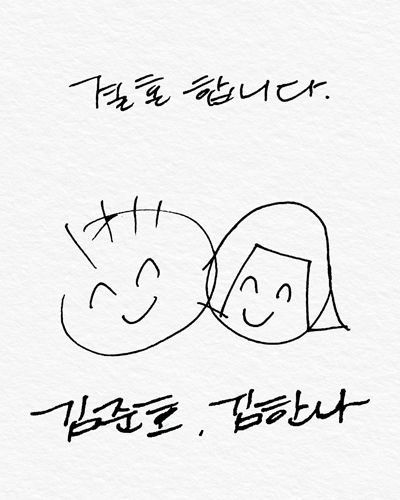 결혼 합니다.
김준호, 김한나